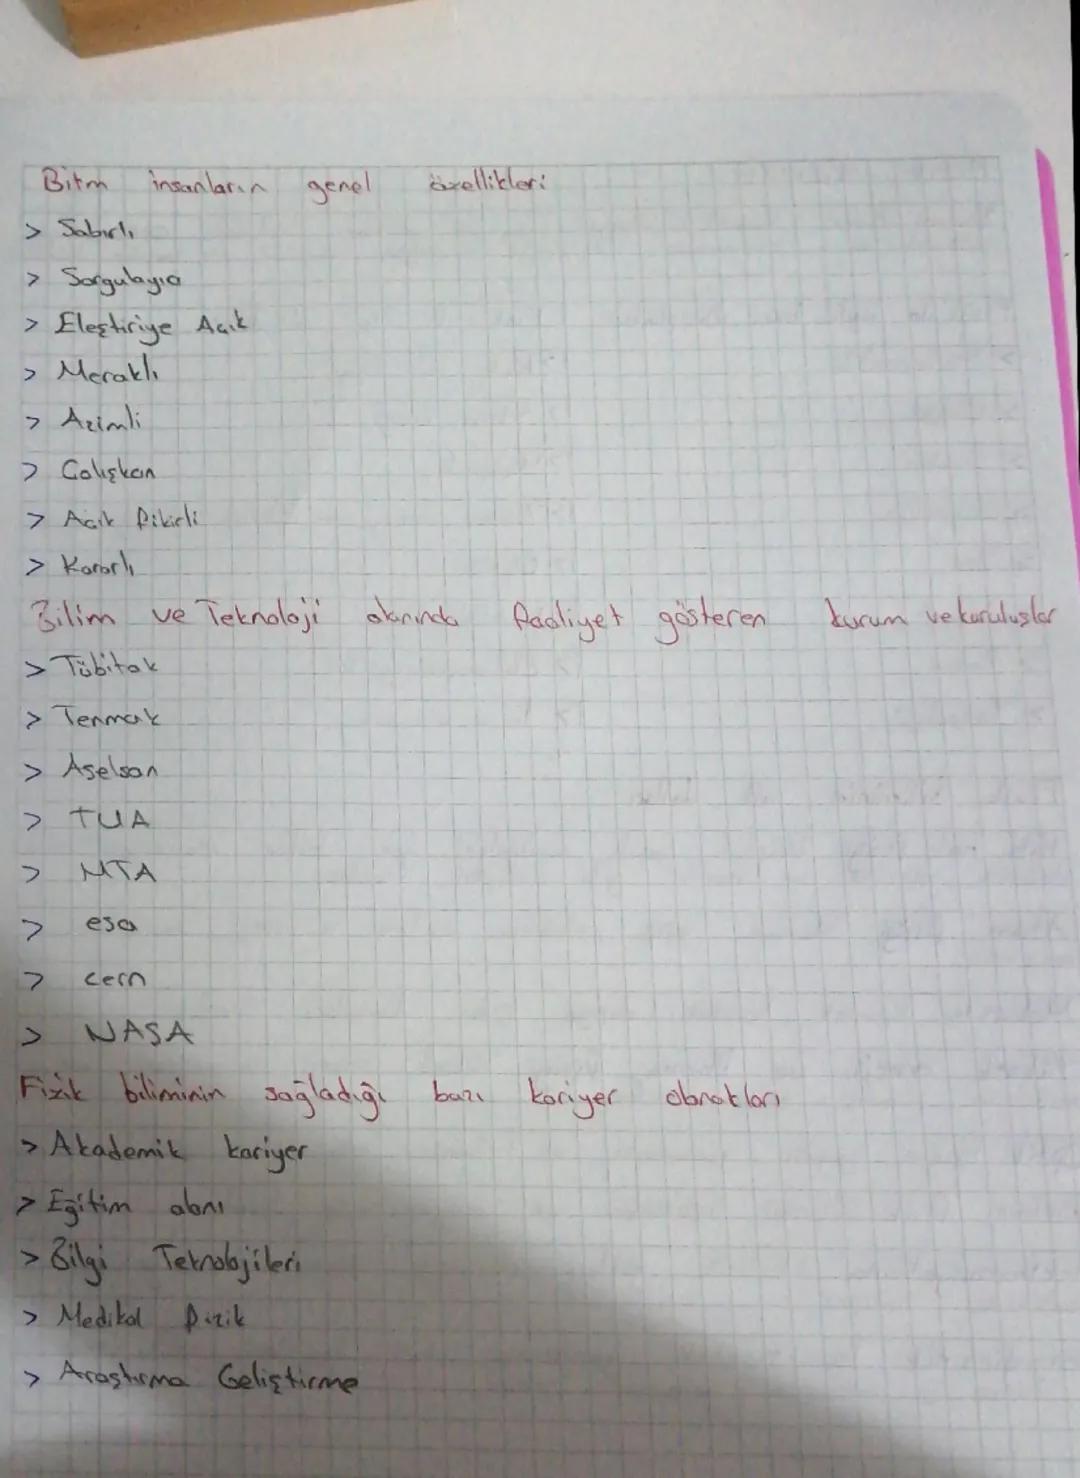 Bitm insanların genel özellikleri
> Sabırlı
> Sorgulayıcı
> Eleştiriye Açık
> Meraklı
> Azimli
> Çalışkan
> Açık fikirli
> Kararlı
Bilim ve Teknoloji alanında faaliyet gösteren kurum ve kuruluşlar
> Tübitak
> Tenmak
> Aselsan
> TUA
> MTA
> esa
> cern
> NASA
Fizik biliminin sağladığı bazı kariyer olanakları
> Akademik kariyer
> Eğitim alanı
> Bilgi Teknolojileri
> Medikal fizik
> Araştırma Geliştirme